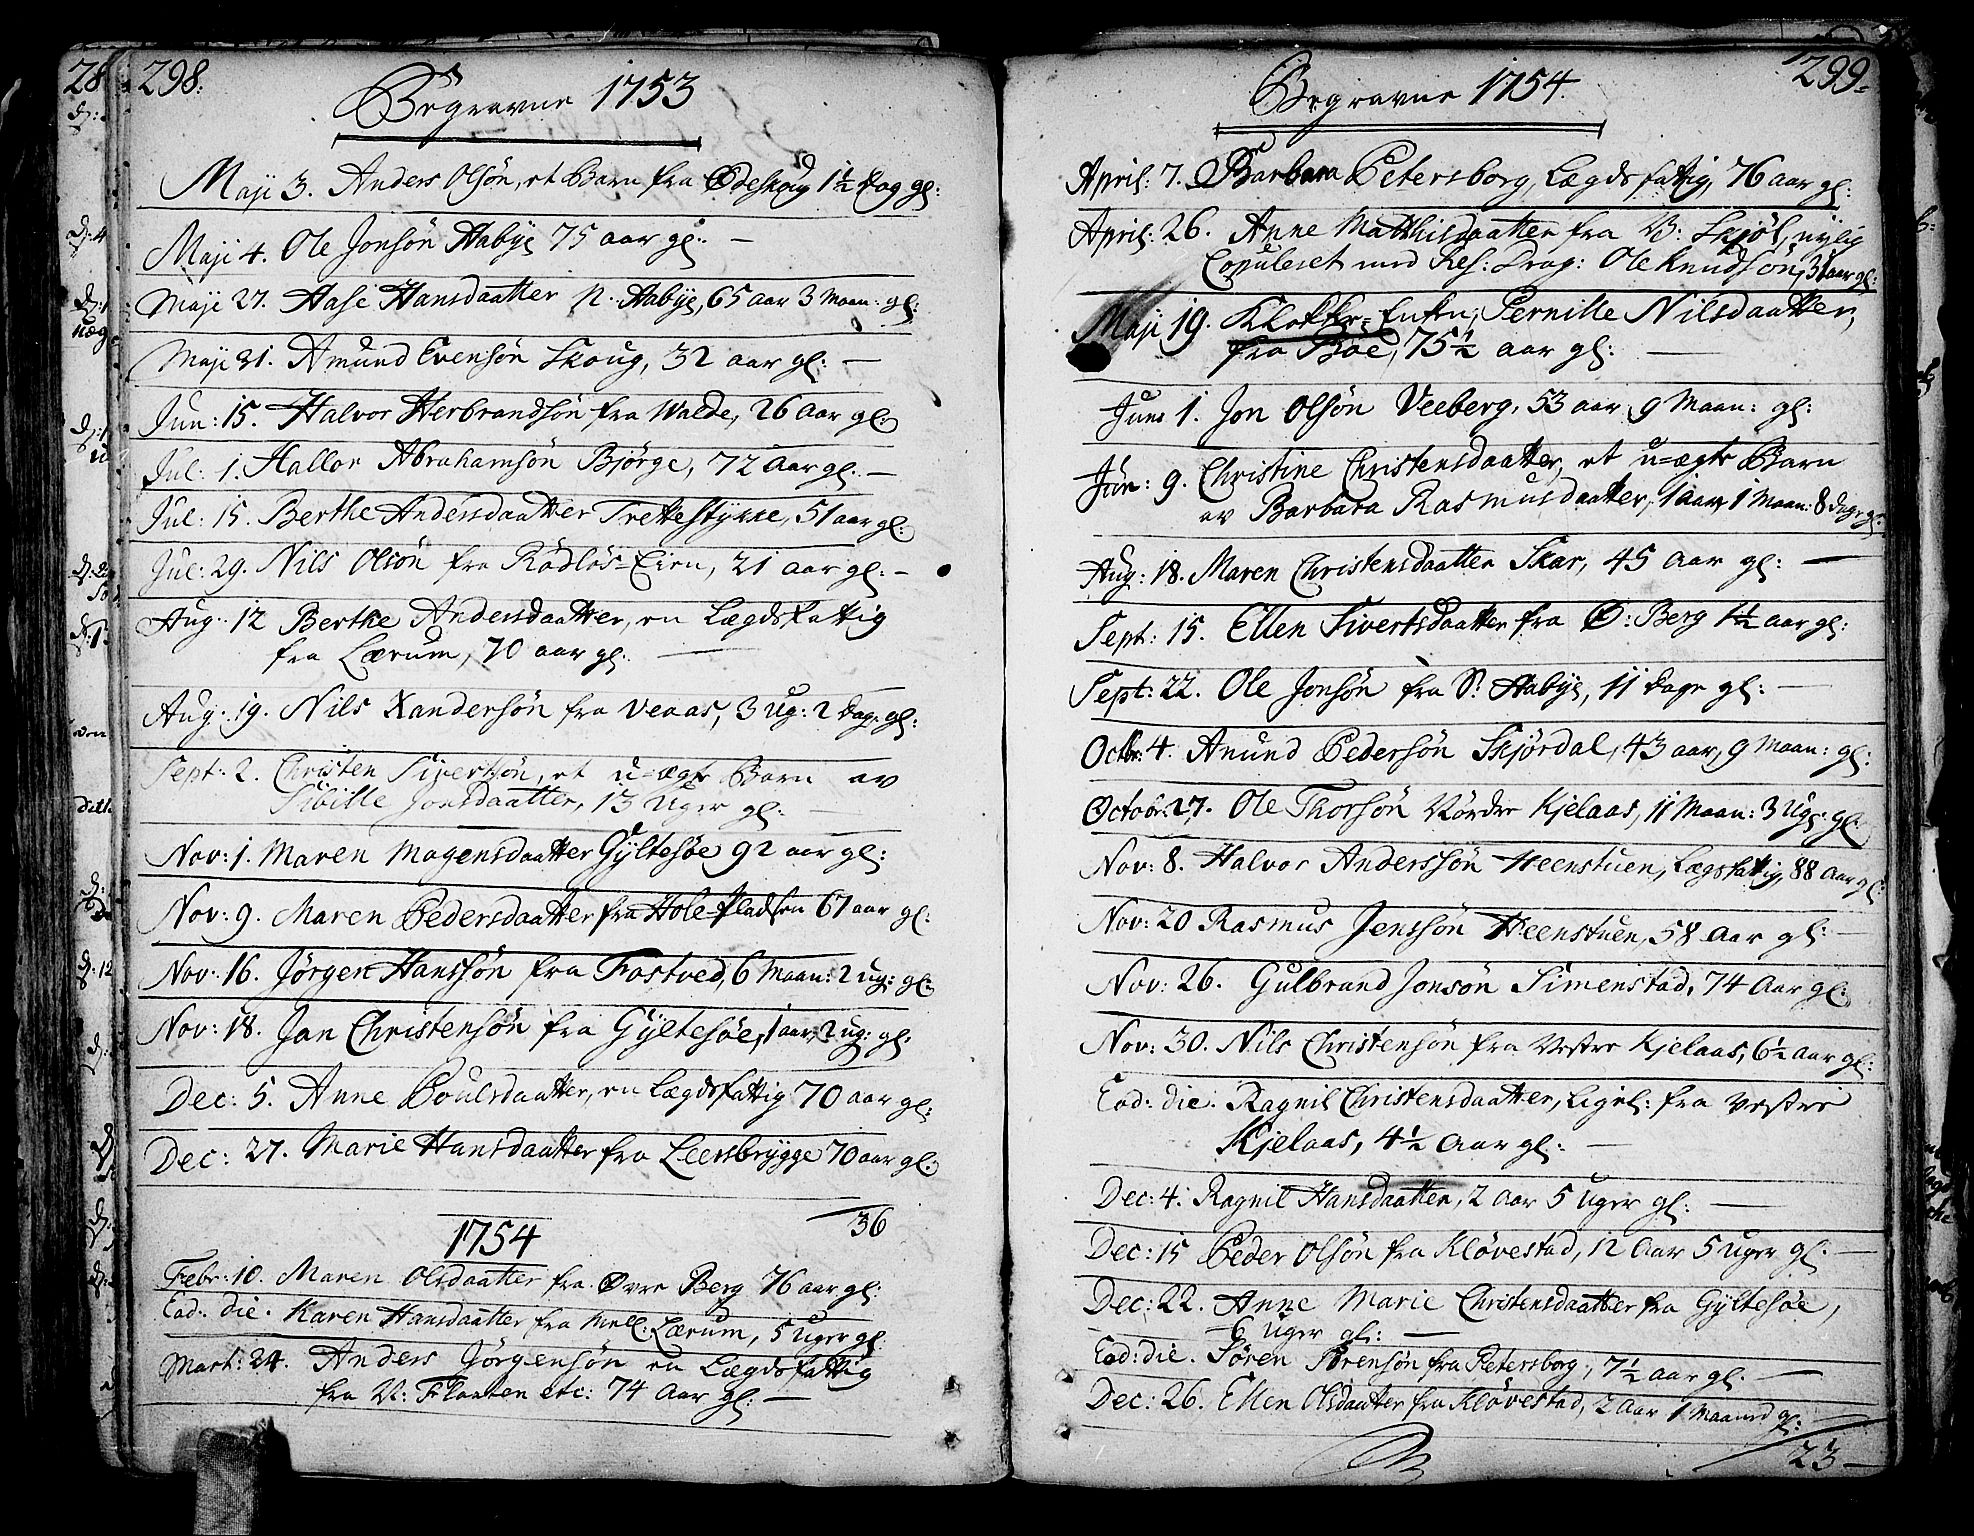 298.
Begravne 1753
Maji 3. Anders Olsøn, et Barn fra Ødeskoug 1½ dag gl:
Maji 4. Ole Jonsøn Aabye 75 aar gl: —
Maji 27. Aase Hansdaatter N. Aabye, 65 aar 3 Maan: gl:
Maji 31. Amund Evensøn Skoug, 32 aar gl: —
Jun: 15. Halvor Herbrandsøn fra Walde, 26 aar gl:
Jul: 1. Hallor Abrahamsøn Bjørge, 72 Aar gl: —
Jul: 15. Berthe Andersdaatter Trettestykke, 51 aar gl:
Jul: 29. Nils Olsøn fra Rødløs=Eien, 21 aar gl: —
Aug: 12 Berthe Andersdaatter, en Lægdsfattig
fra Lærum, 70 aar gl: —
Aug: 19. Nils Xandersøn fra Veaas, 3 ug: 2 Dage gl:
Sept: 2. Christen Sivertsøn, et u=ægte Barn av
Sibille Jonsdaatter, 13 Uger gl: —
Nov: 1. Maren Mogensdaatter Gyltesøe 92 aar gl:
Nov: 9. Maren Pedersdaatter fra Hole-Pladsen 67 aar gl:
Nov: 16. Jørgen Hanssøn fra Fostved, 6 Maan: 2 ug: gl:
Nov: 18. Jan Christensøn fra Gyltesøe, 1 aar, 2 ug: gl:
Dec: 5. Anne Poulsdaatter, en Lægdsfattig 70 aar gl:
Dec: 27. Marie Hansdaatter fra Leersbrygge 70 aar gl:
36
1754
Febr: 10. Maren Olsdaatter fra Øvre Berg 76 aar gl:
Eod: die. Karen Hansdaatter fra Mell: Lærum, 5 Uger gl:
Mart: 24. Anders Jørgensøn en Lægdsfattig
fra V: Flaaten etc: 74 Aar gl: —
299.
Begravne 1754.
April: 7. Barbara Petersborg, Lægdsfattig, 76 aar gl:
April: 26. Anne Matthisdaatter fra V: Skjøl, nylig
Copuleret med Res: Drag: Ole Knudsøn, 31 aar gl:
Maji 19. Klokker=Enken, Pernille Nilsdaatter,
fra Bøe, 75½ aar gl: —
Juni 1. Jon Olsøn Veeberg, 53 aar, 9 Maan: gl:
Jun: 9. Christine Christensdaatter, et u=ægte Barn
av Barbara Rasmusdaatter, 1 aar, 1 Maan: 8 dage gl:
Aug: 18. Maren Christensdaatter Skar, 45 aar gl: —
Sept: 15. Ellen Sivertsdaatter fra Ø: Berg 1½ aar gl:
Sept: 22. Ole Jonsøn fra S: Aabye, 11 dage gl: —
Octbr: 4. Anund Pedersøn Skjørdal, 43 aar, 9 Maan: gl:
Octobr: 27. Ole Thorsøn Nørdre Kjelaas, 11 Maan: 3 Ug: gl:
Nov: 8. Halvor Anderssøn Heenstuen, Lægsfattig, 88 Aar gl:
Nov: 20 Rasmus Jenssøn Heenstuen, 58 Aar gl: —
Nov: 26. Gulbrand Jonsøn Simenstad, 74 Aar gl:
Nov: 30. Nils Christensøn fra Vestre Kjelaas, 6½ Aar gl:
Eod: die. Ragnil Christensdaatter, Ligel: fra Vestre
Kjelaas, 4½ Aar gl: —
Dec: 4. Ragnil Hansdaatter, 2 aar 5 Uger gl: —
Dec: 15 Peder Olsøn fra Kløvestad, 12 Aar 5 uger gl: —
Dec: 22. Anne Marie Christensdaatter fra Gyltesøe,
6 Uger gl: —
Eod: die. Søren Sørensøn fra Petersborg, 7½ aar gl: —
Dec: 26. Ellen Olsdaatter fra Kløvestad, 2 Aar 1 Maaned gl:
23 —